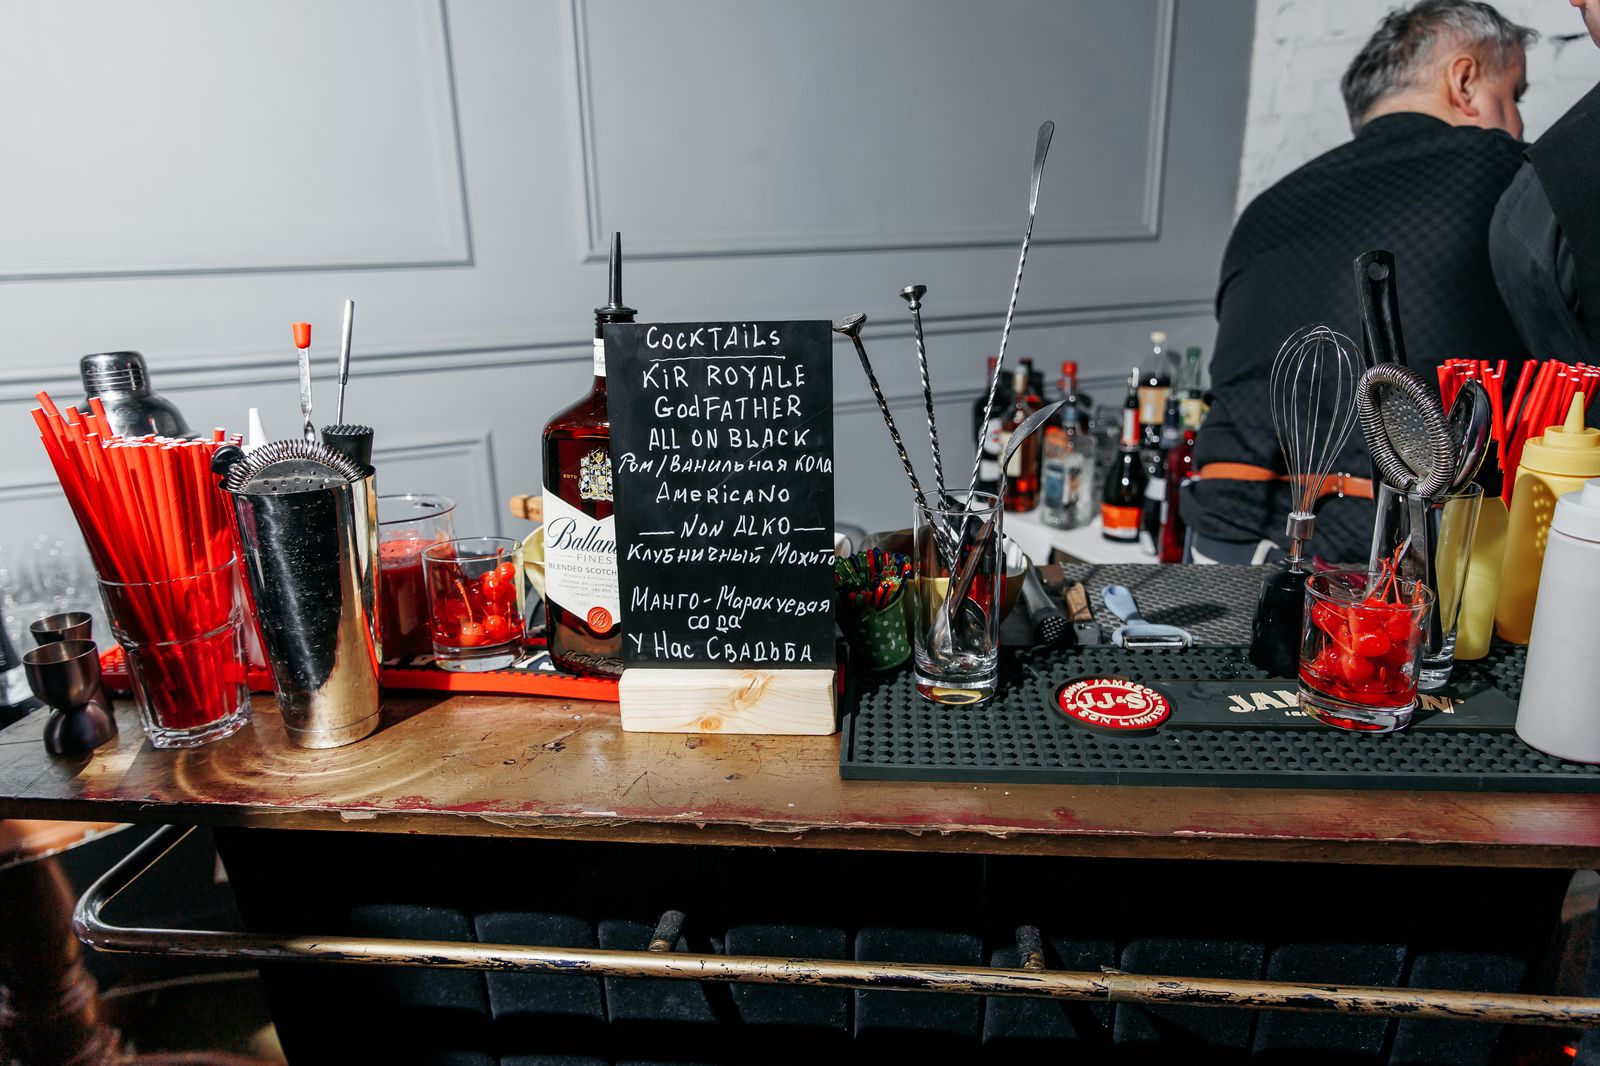 COCKTAiLs
KiR ROYALE
GodFATHER
ALL ON BLACK
Ром/Ванильная кола
AMERICANO
— NON ALKO —
Клубничный Мохито
Манго-Маракуевая
сода
У Нас Свадьба
Ballan
FINEST
BLENDED SCOTCH
B
JOHN JAMESON
JJ&S
& SON LIMITED
JAM
N